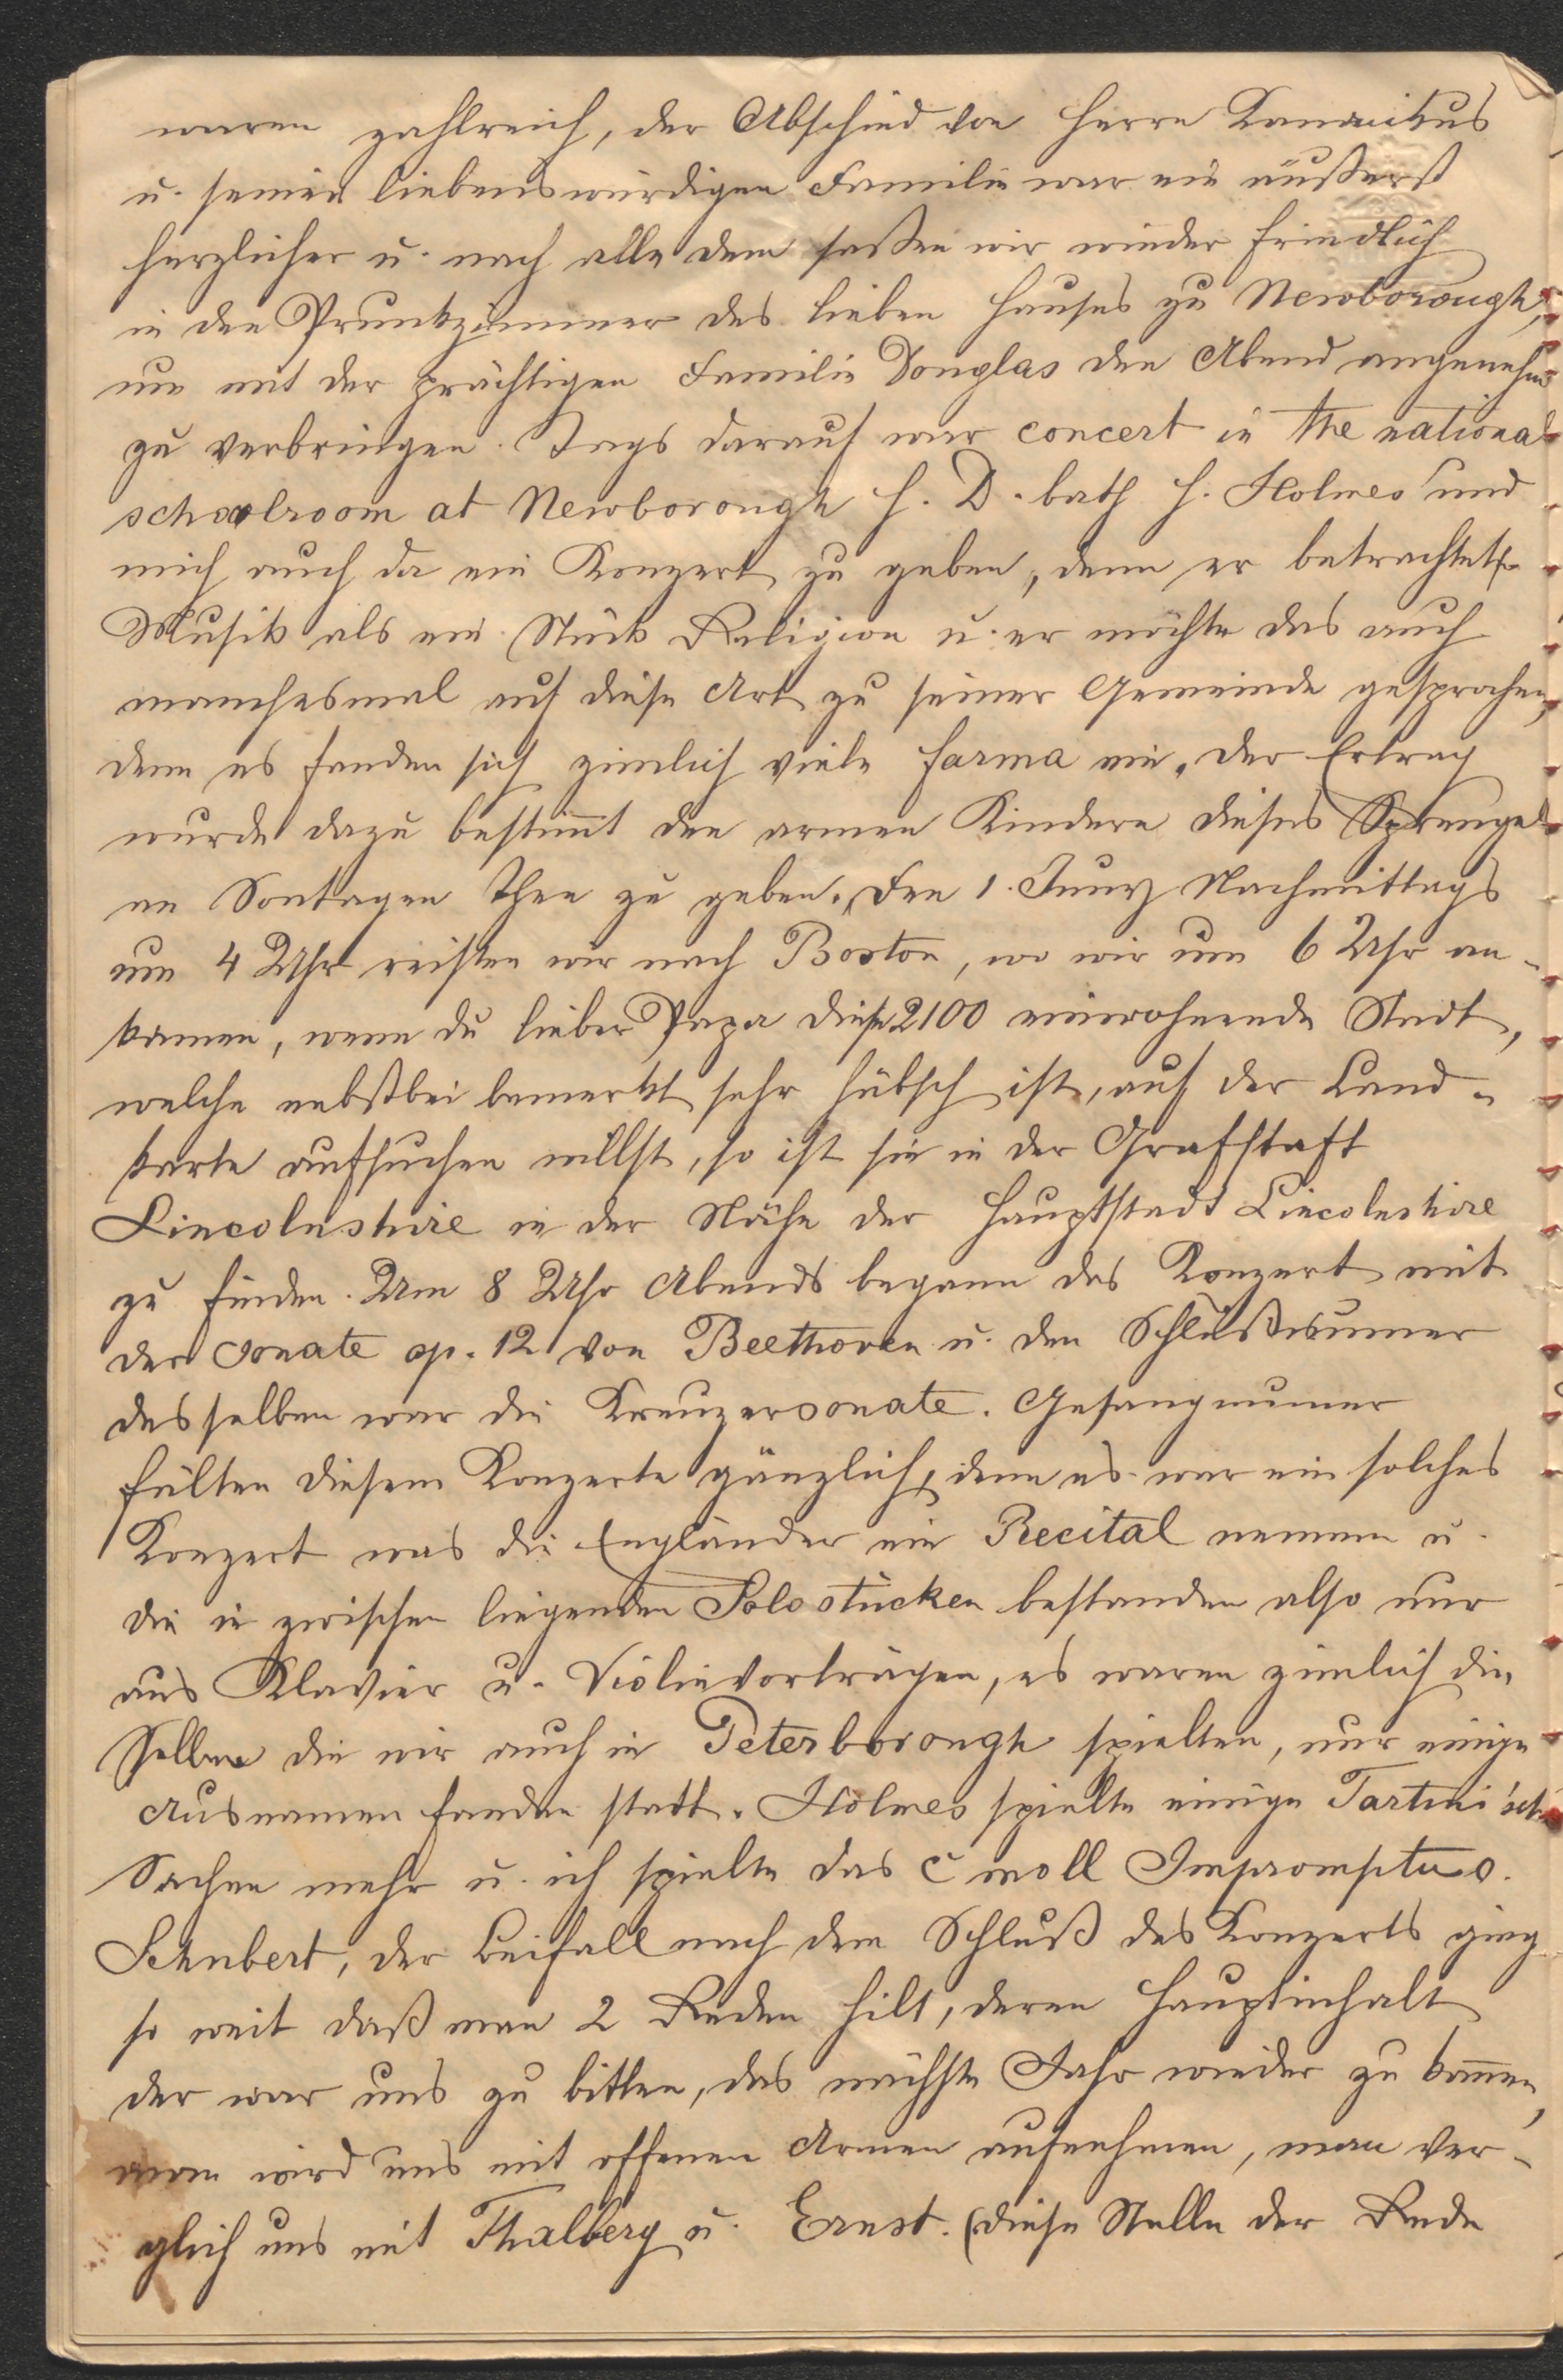 waren zahlreich, der Abschied von Herrn Kanonikus
u. seiner liebenswürdigen Familie war ein äußerst
herzlicher u. nach alle dem saßen wir wieder friedlich
in den Prunkzimmer des lieben Hauses zu Newborough,
um mit der prächtigen Familie Douglas den Abend angenehm
zu verbringen. Tags darauf war concert in the national
schoolroom at Newborough H. D. bath H. Holmes und
mich auch da ein Konzert zu geben, denn er betrachtet
Musik als ein Stück Religion u. er möchte das auch
manchesmal auf diese Art zu seiner Gemeinde gesprochen,
denn es fanden sich zimlich viele farma ein. Der Ertrag
wurde dazu bestimt den armen Kindern dieses Sprengels
an Sontagen Thee zu geben. Den 1. Juny Nachmittags
um 4 Uhr reisten wir nach Boston, wo wir um 6 Uhr an-
kamen, wenn du lieber Papa diese 2100 einwohnende Stadt,
welche nebstbei bemerkt sehr hübsch ist, auf der Land-
karte aufsuchen willst, so ist sie in der Grafstaft
Lincolnshire in der Nähe der Hauptstadt Lincolnshire
zu finden. Um 8 Uhr Abends begann das Konzert mit
der Sonate op. 12 von Beethoven u. den Schlußnumer
desselben war die Kreuzersonate. Gesangnumer
fülten diesem Konzerte gänzlich, denn es war ein solches
Konzert was die Engländer ein Recital nennen u.
die in zwischen liegenden Solostücken bestanden also nur
aus Klavier u. Violinvorträgen, es waren zimlich die
Selben die wir auch in Peterborough spielten, nur einige
Ausnamen fanden statt. Holmes spielte einige Tartini'sch
Sachen mehr u. ich spielte das C moll Impromptu v.
Schubert, der Beifall nach dem Schluß des Konzerts ging
so weit daß man 2 Reden hilt, deren Hauptinhalt
der war uns zu bitten, das nächste Jahr wieder zu komen,
man wird uns mit offenen Armen aufnehmen, man ver-
glich uns mit Thalberg u. Ernst. (diese Stelle der Rede